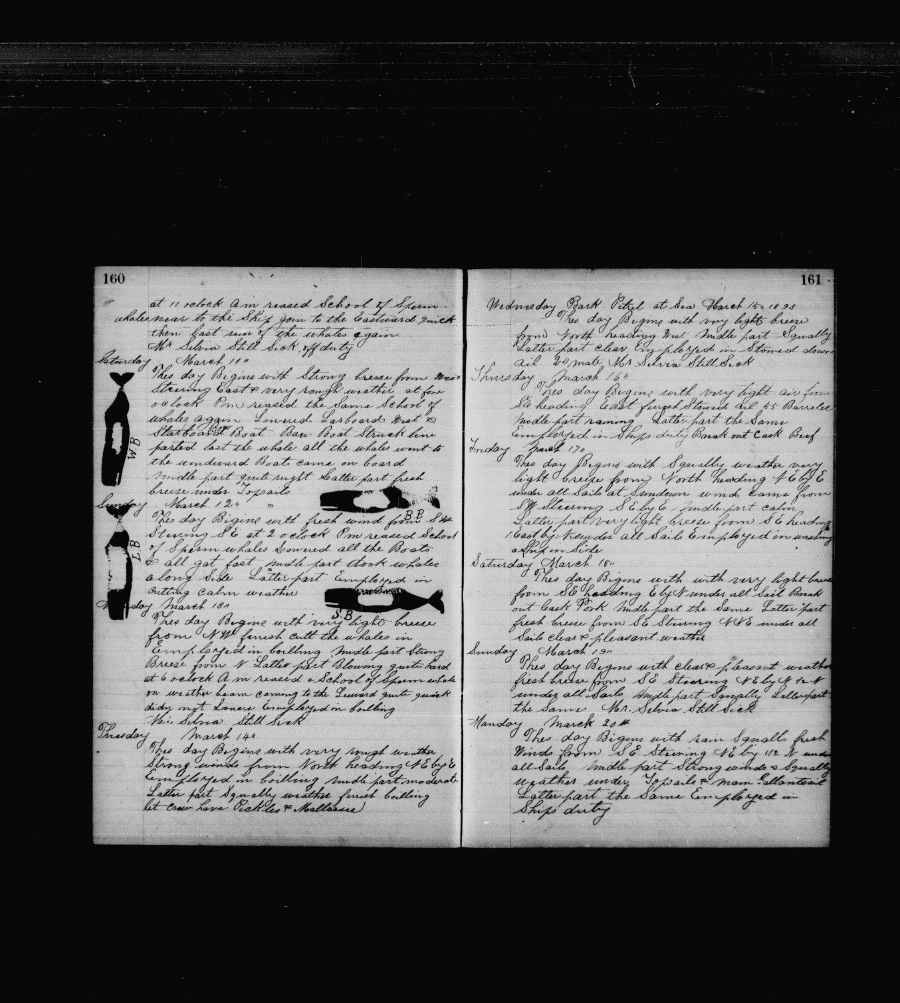 160
at 11 oclock Am reased School of Sperm
whales near to the Ship goin to the Eastward quick
then last sun of the whales again
Mr Selvia Still Sick off duty
Saturday March 11th
Thes day Begins with Strong breese from West
Stearing East & very rough weather at four
oclock Pm reased the same School of
whales again Lowered Larboard West &
Starboard Boat Bow Boat Struck line
parted last the whale all the whales went to
the windward Boats came on board
Middle part quite rught Latter part fresh
breese under Topsails
W B
Sunday March 12th
B B
Thes day Begins with fresh wind from S W
Stearing S E at 2 oclock Pm reased School
of Sperm whales Lowered all the Boats
& all got fast Middle part took whales
along Side Latter part Employed in
Cutting Calm weather
L B
S B
day March 13th
Thes day Begins with very light breese
from N W finesh Cutt the whales in
Employed in boilling Middle part Strong
Breese from N Latter part Blowing quite hard
at 6 oclock Am reased a School of Sperm whale
on weather beam coming to the Leward quite quick
diden not Lower Employed in boilling
Mr Selvia Still Sick
Thuesday March 14th
Thes day Begins with very rough weather
Strong winds from North heading N E by E
Employed in boilling Middle part moderate
Latter part Squally weather finesh boilling
let Crew have Pickles &
161
Wednesday Bark Petrel at Sea March 15th
Thes day Begins with very light breese
from North heading West Middle part Squally
Latter part clear Employed in Stowed down
oil 2nd mate Mr Selvia Still Sick
Thursday March 16th
Thes day Begins with very light air from
S E heading East finesh Stowed oil 55 Barreles
Middle part raining Latter part the Same
Employed in Ships duty Break out Cask Beef
Friday March 17th
Thes day Begins with Squally weather very
light breese from North heading N E by E
under all Sails at Sundown wind came from
S W Stearing S E by E Middle part calm
Latter part very light breese from S E heading
East by N under all Sails Employed in washing
Ship in Side
Saturday March 18th
Thes day Begins with with very light breese
from S E heading E by N under all Sail Break
out Cask Pork Middle part the Same Latter part
fresh breese from S E Stearing N N E under all
Sails clear & pleasant weather
Sunday March 19th
Thes day Begins with clear & pleasant weather
fresh breese from S E Stearing N E by N
under all Sails Middle part Squally Latter part
the Same Mr Selvia Still Sick
Monday March 20th
Thes day Begins with rain Squall fresh
Winds from S E Stearing N E by 1/2 N under
all Sails Middle part Strong winds & Squally
weather under Topsails & Main Gallantsail
Latter part the Same Employed in
Ships duty